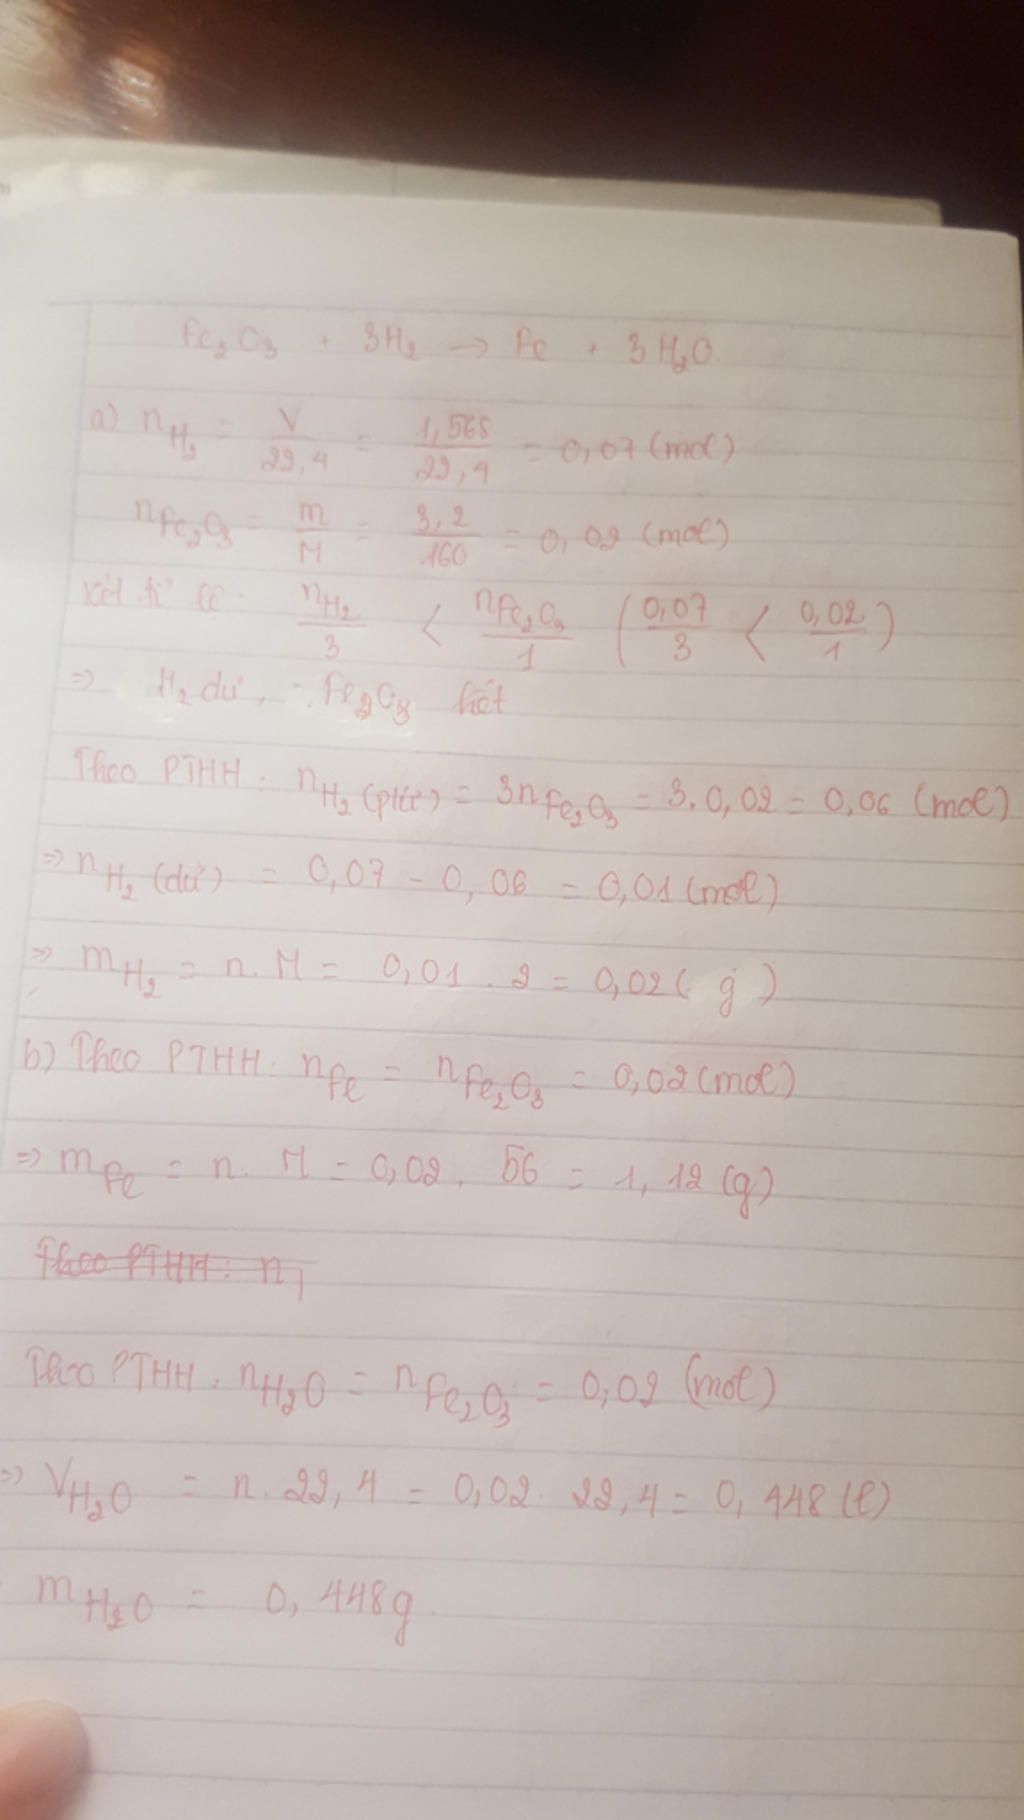 Fe₂O₃ + 3H₂ → Fe + 3H₂O
a) n H₂ = V/22,4 = 1,568/22,4 = 0,07 (mol)
n Fe₂O₃ = m/M = 3,2/160 = 0,02 (mol)
Xét tỉ lệ: n H₂/3 < n Fe₂O₃/1 (0,07/3 < 0,02/1)
=> H₂ dư, Fe₂O₃ hết
Theo PTHH: n H₂ (pứ) = 3n Fe₂O₃ = 3.0,02 = 0,06 (mol)
=> n H₂ (dư) = 0,07 - 0,06 = 0,01 (mol)
=> m H₂ = n. M = 0,01 . 2 = 0,02 (g)
b) Theo PTHH: n Fe = n Fe₂O₃ = 0,02 (mol)
=> m Fe = n. M = 0,02. 56 = 1,12 (g)
Theo PTHH: n
Theo PTHH: n H₂O = n Fe₂O₃ = 0,02 (mol)
=> V H₂O = n. 22,4 = 0,02. 22,4 = 0,448 (l)
m H₂O = 0,448g.